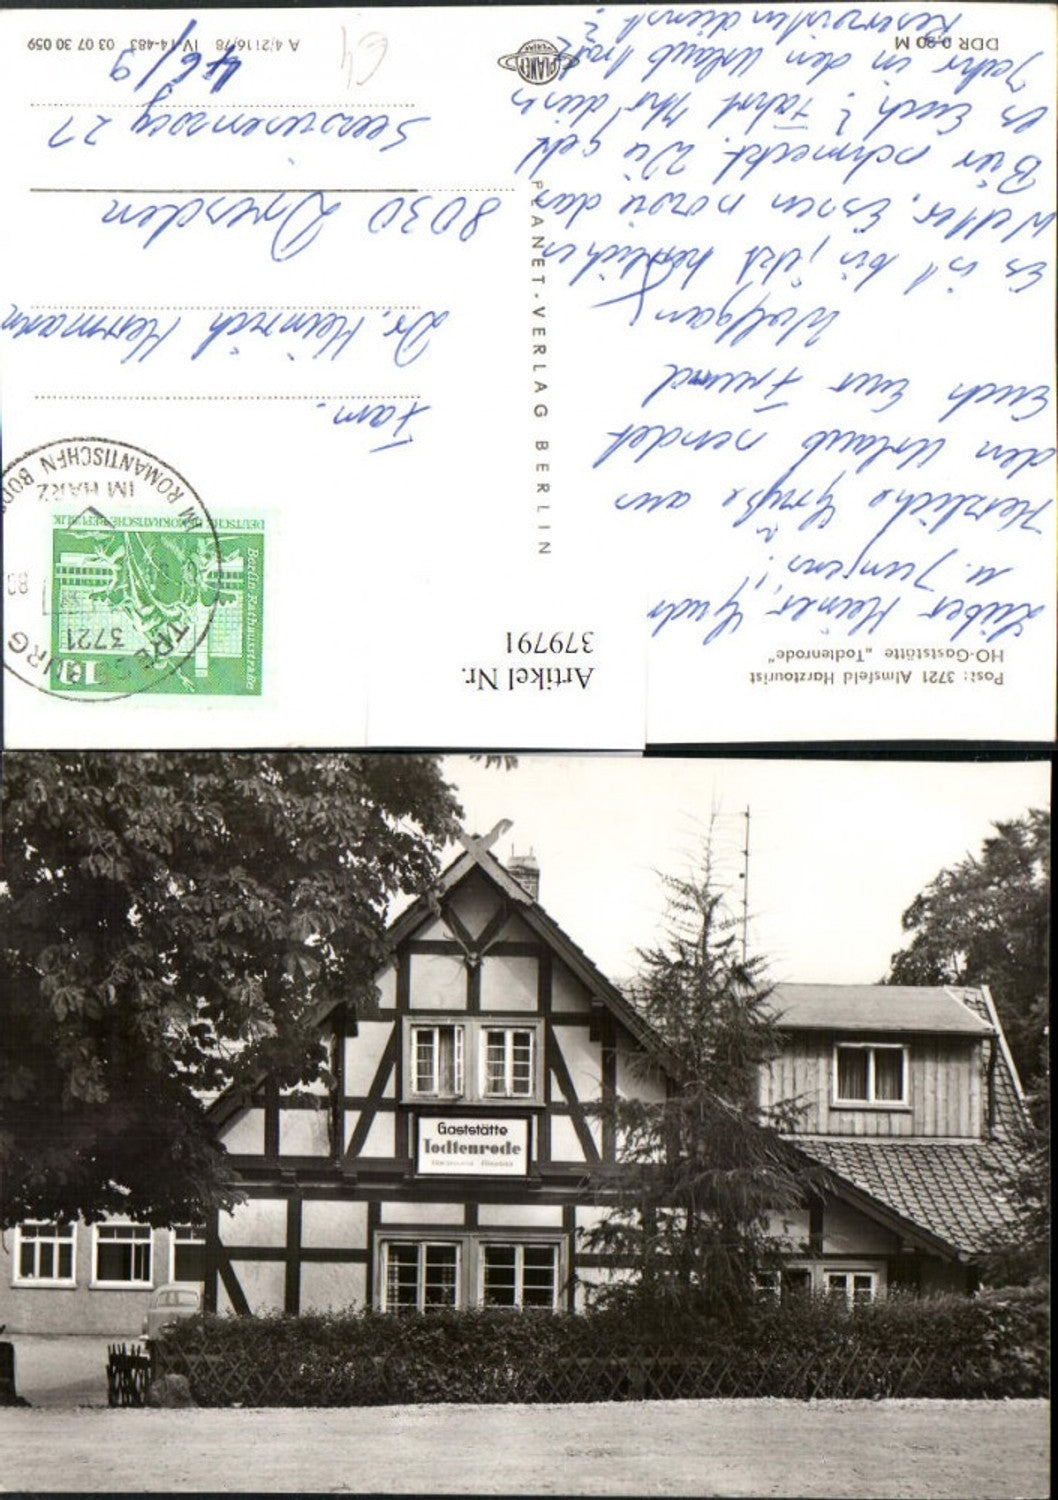 Post: 3721 Almsfeld Harztourist
HO-Gaststätte „Todtenrode"
Lieber Heiner,
u. Jungens!
Herzliche Grüße aus
den Urlaub sendet
Euch Euer Freund
Wolfgang
Es ist bis jetzt herrliches
Wetter, Essen sowie das
Bier schmeckt. Wie geht
es Euch? Fahrt Ihr dies
Jahr in den Urlaub trotz
Reservistendienst?
DDR 0,20 M
PLANET-VERLAG BERLIN
PLANET
VERLAG
Artikel Nr.
379791
Berlin-Rathausstraße
DEUTSCHE DEMOKRATISCHE REPUBLIK
10
TRESEBURG
3721
IM ROMANTISCHEN BODE
IM HARZ
Fam.
Dr. Heinrich Herrmann
8030 Dresden
Seewiesenweg 27
46/9
A 4/2116/78 IV-14-483 03 07 30 059
Gaststätte
Todtenrode